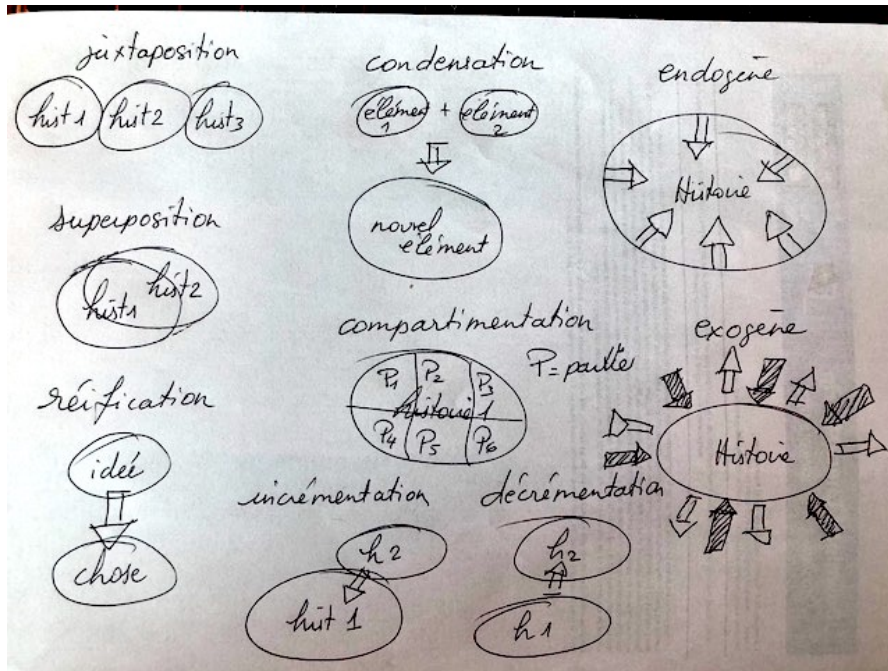 juxtaposition
hist 1 hist 2 hist 3
superposition
hist 1 hist 2
réification
idée
chose
condensation
elément 1 + elément 2
nouvel
elément
compartimentation
P1 P2 P3
histoire 1
P4 P5 P6
P = partie
incrémentation
h 2
hist 1
décrémentation
h 2
h 1
endogène
Histoire
exogène
Histoire